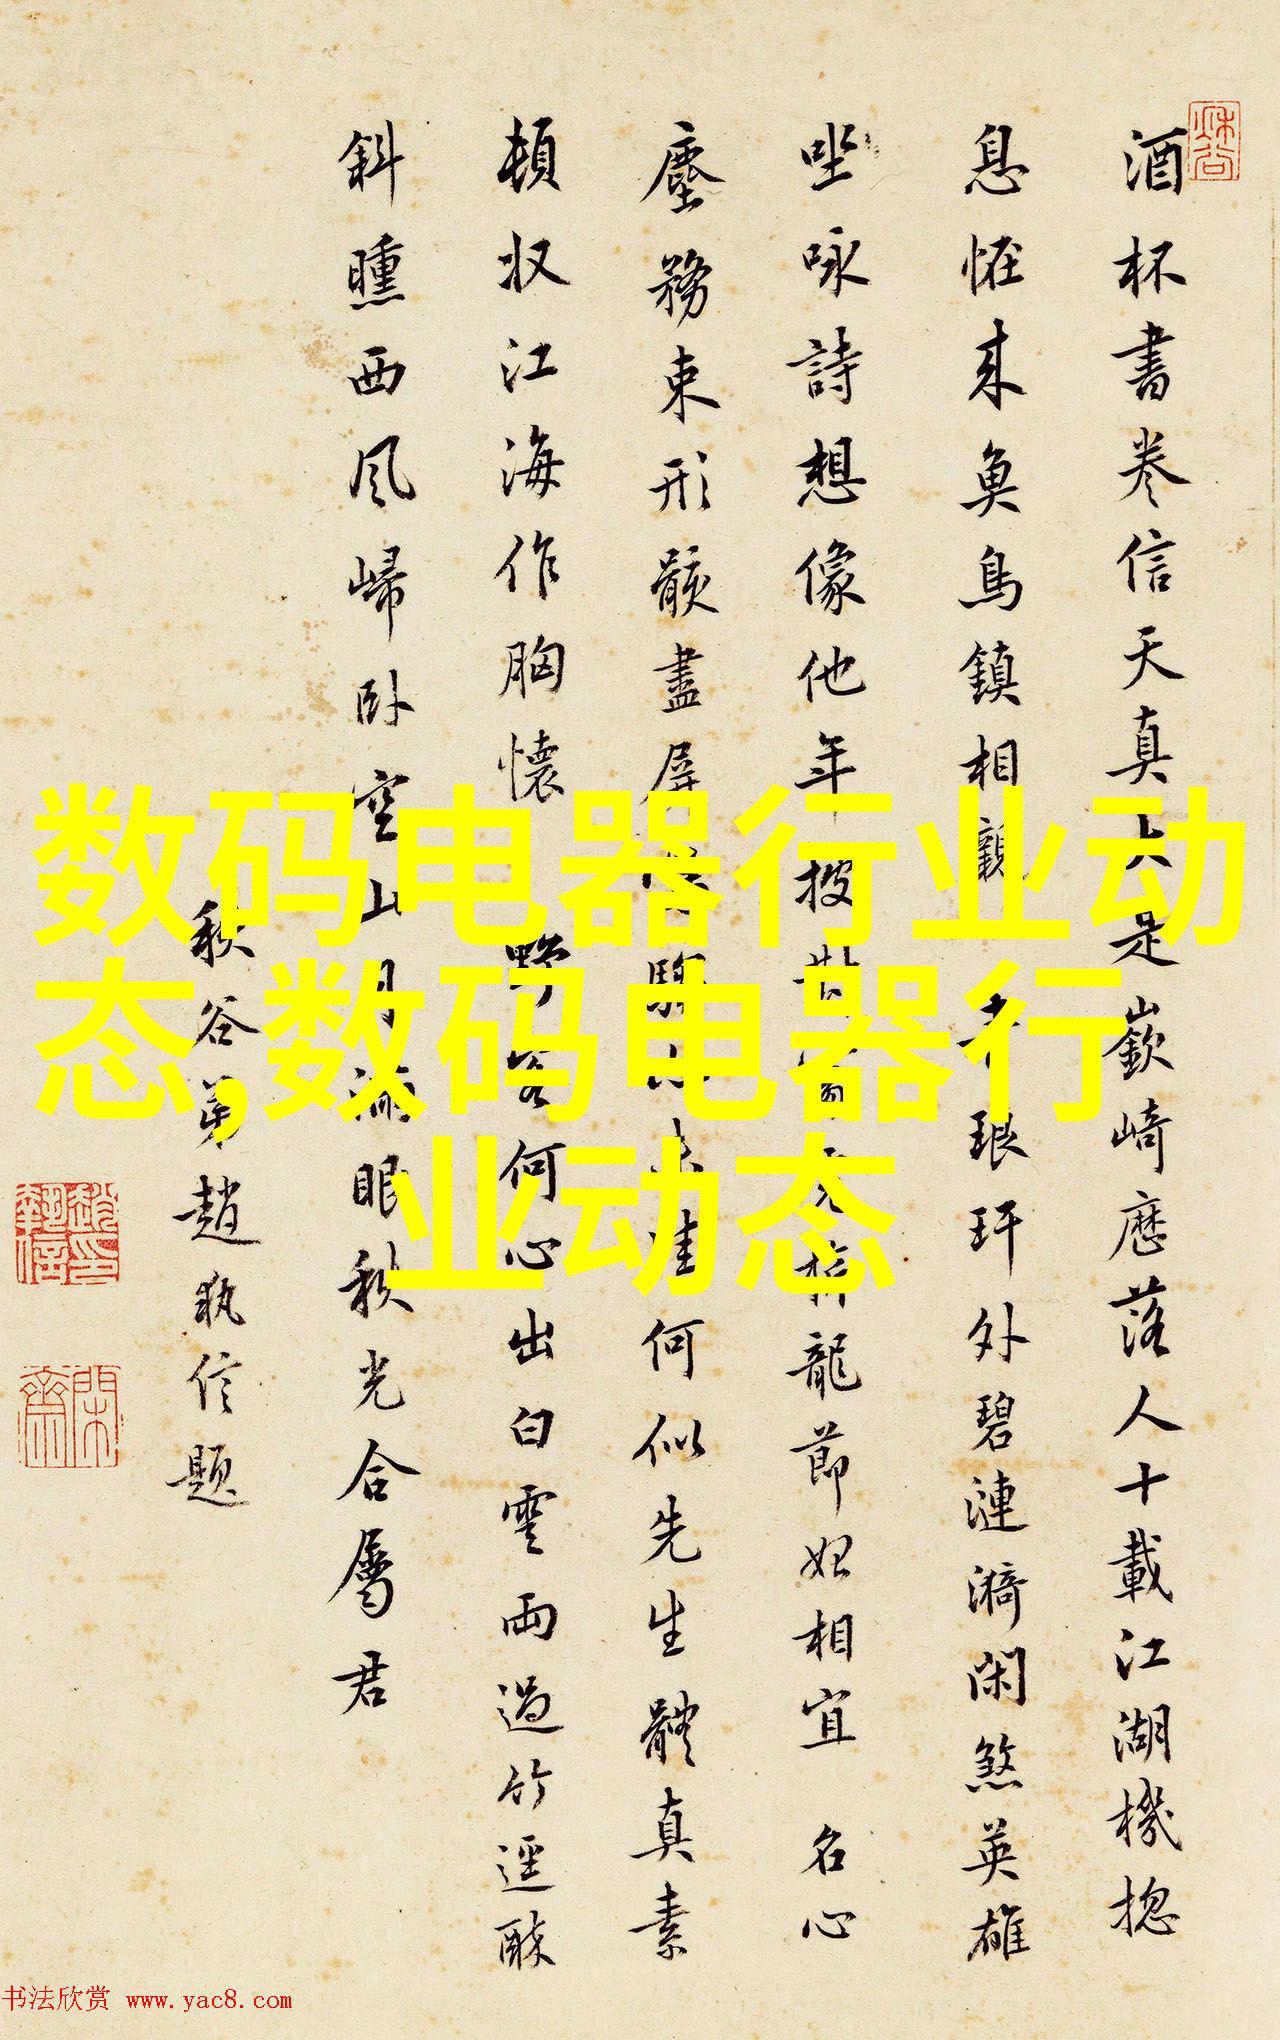 酒杯書卷信天真大是嶔崎厯落人十載江湖機揔
息恠来魚鳥鎮相親 琅玕外碧漣漪閑煞英雄
坐咏詩想像他年披龍節始相宜 名心
塵務束形骸盡屏何似先生體真素
頓収江海作胸懷 野客何心出白雲雨過竹逕酥
斜曛西风歸卧空山月滿眼秋光合屬君
秋谷弟趙执信題
数码电器行业动
态,数码电器行
业动态
书法欣赏 www.yac8.com